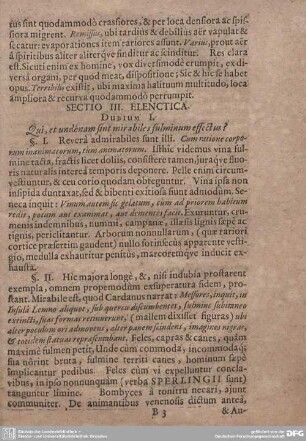 tus sint quodammodò crassiores, & per loca densiora ac spis-
siora migrent. Remissius, ubi tardiùs & debiliùs aër vapulat &
secatur: evaporationes item rariores assunt. Varius, prout aër
à spiritibus aliter aliterque finditur ac scinditur. Res clara
est. Sicuti enim ex homine, vox diversimodè erumpit, ex di-
versâ organi, per quod meat, dispositione; Sic & hic se habet
opus. Terribilis existit, ubi maxima halituum multitudo, loca
ampliora & recurva quodammodò perrumpit.
SECTIO III. ELENCTICA.
DUBIUM I.
Qui, et undenam sint mirabiles fulminum effectus?
§. I. Reverâ admirabiles sunt illi. Cum ratione corpo-
rum inanimatorum, tum animatorum. Isthic videmus vina ful-
mine tacta, fractis licet doliis, consistere tamen, juraque fluo-
ris naturalis intereà temporis deponere. Pelle enim circum-
vestiuntur, & ceu corio quodam obteguntur. Vina ipsa non
insipida duntaxat, sed & bibenti exitiosa sunt admodum. Sene-
ca inquit: Vinum autem sic gelatum, cum ad priorem habitum
redit, potum aut exanimat, aut dementes facit. Exuruntur, cru-
menis indemnibus, nummi, campanæ, illæsis lignis sæpè ac
tignis, pericliantur. Arborum nonnullarum, (quæ rariori
cortice præsertim gaudent) nullo forinsecus apparente vesti-
gio, medulla exhauritur penitus, marcoremque inducit ex-
hausta.
§. II. Hic majora longè, &, nisi indubia prostarent
exempla, omnem propemodùm exsuperatura fidem, pro-
stant. Mirabile est, quod Cardanus narrat: Messores, inquit, in
Insulâ Lemno aliquot, sub quercu discumbentes, fulmine subitaneo
extincti, suas formas retinuerunt, (mallem dixisset figuras) ubi
alter poculum ori admovens, alter panem scindens, imagines vigoræ, &
totidem statuas repræsentabant. Feles, capras & canes, quàm
maximè fulmen petit, Unde cum commoda, incommoda ip-
sis nôrint bruta, fulmine territi canes, hominum sæpè se
implicantur pedibus. Feles cùm vi expelluntur concla-
vibus, in ipso nonunquam (verba SPERLINGII sunt)
tanguntur limine. Bombyces à tonitru necari, ajunt
communiter. De animantibus venenosis dictum antea,
B 3 & Au-